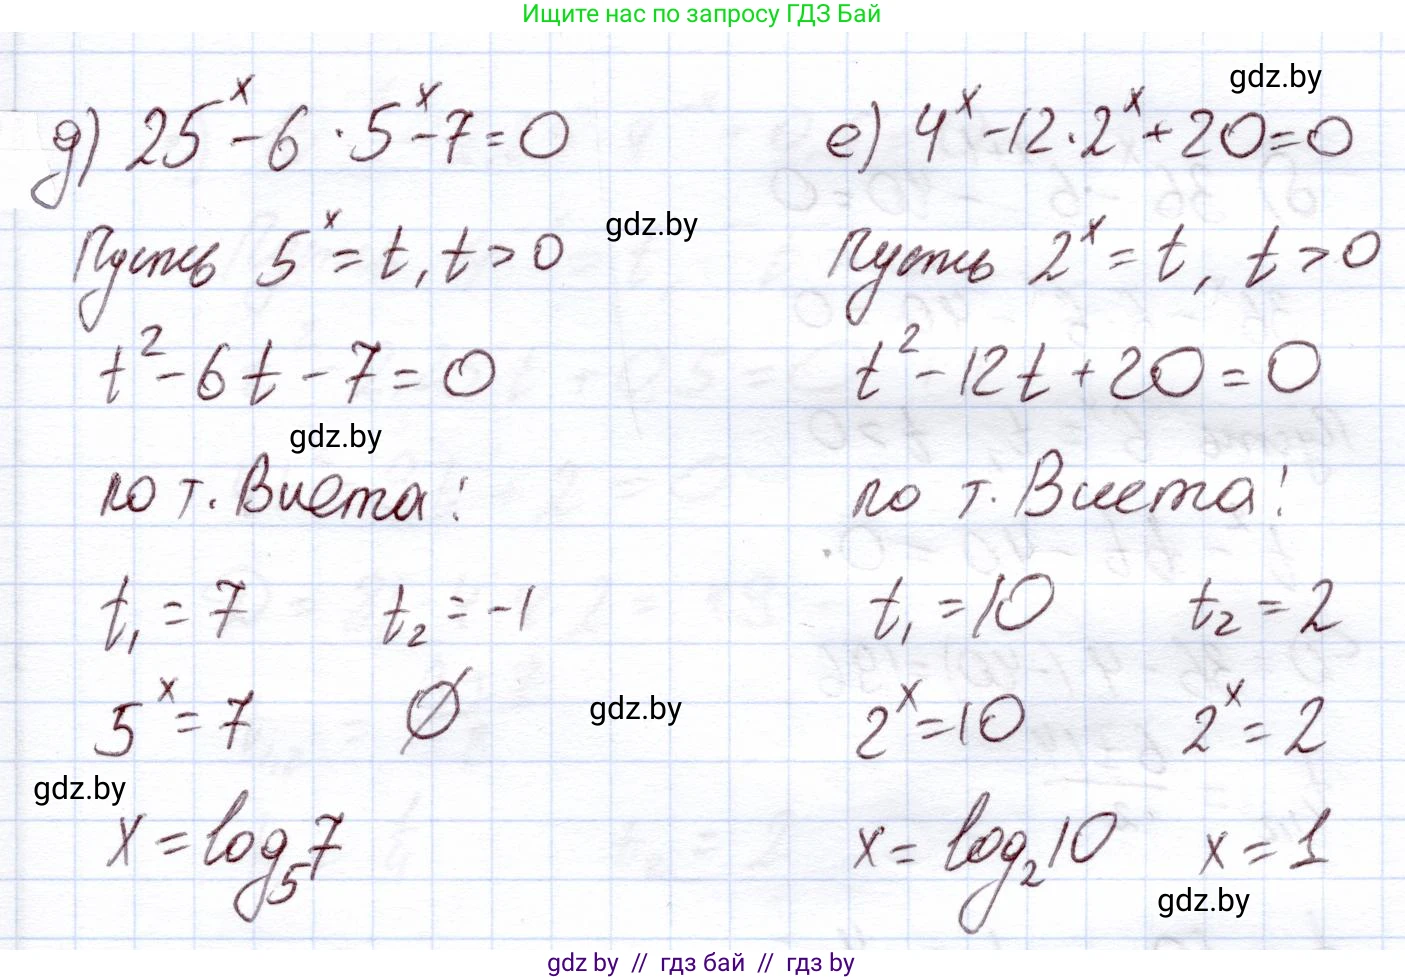 Ищите нас по запросу ГДЗ Бай
gdz.by
д) 25^x - 6 · 5^x - 7 = 0
Пусть 5^x = t, t > 0
gdz.by
t^2 - 6t - 7 = 0
gdz.by
по т. Виета:
t_1 = 7 t_2 = -1
5^x = 7 ∅
gdz.by
gdz.by
x = log_5 7
е) 4^x - 12 · 2^x + 20 = 0
Пусть 2^x = t, t > 0
t^2 - 12t + 20 = 0
по т. Виета:
t_1 = 10 t_2 = 2
2^x = 10 2^x = 2
x = log_2 10 x = 1
gdz.by
gdz by // гдз бай // гдз by